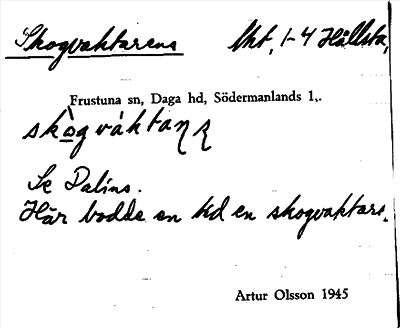 Skogvaktarens
lht, 1-4 Hållsta,
Frustuna sn, Daga hd, Södermanlands l,.
skògváktaṇʐ
Se Dalins.
Här bodde en tid en skogvaktare.
Artur Olsson 1945